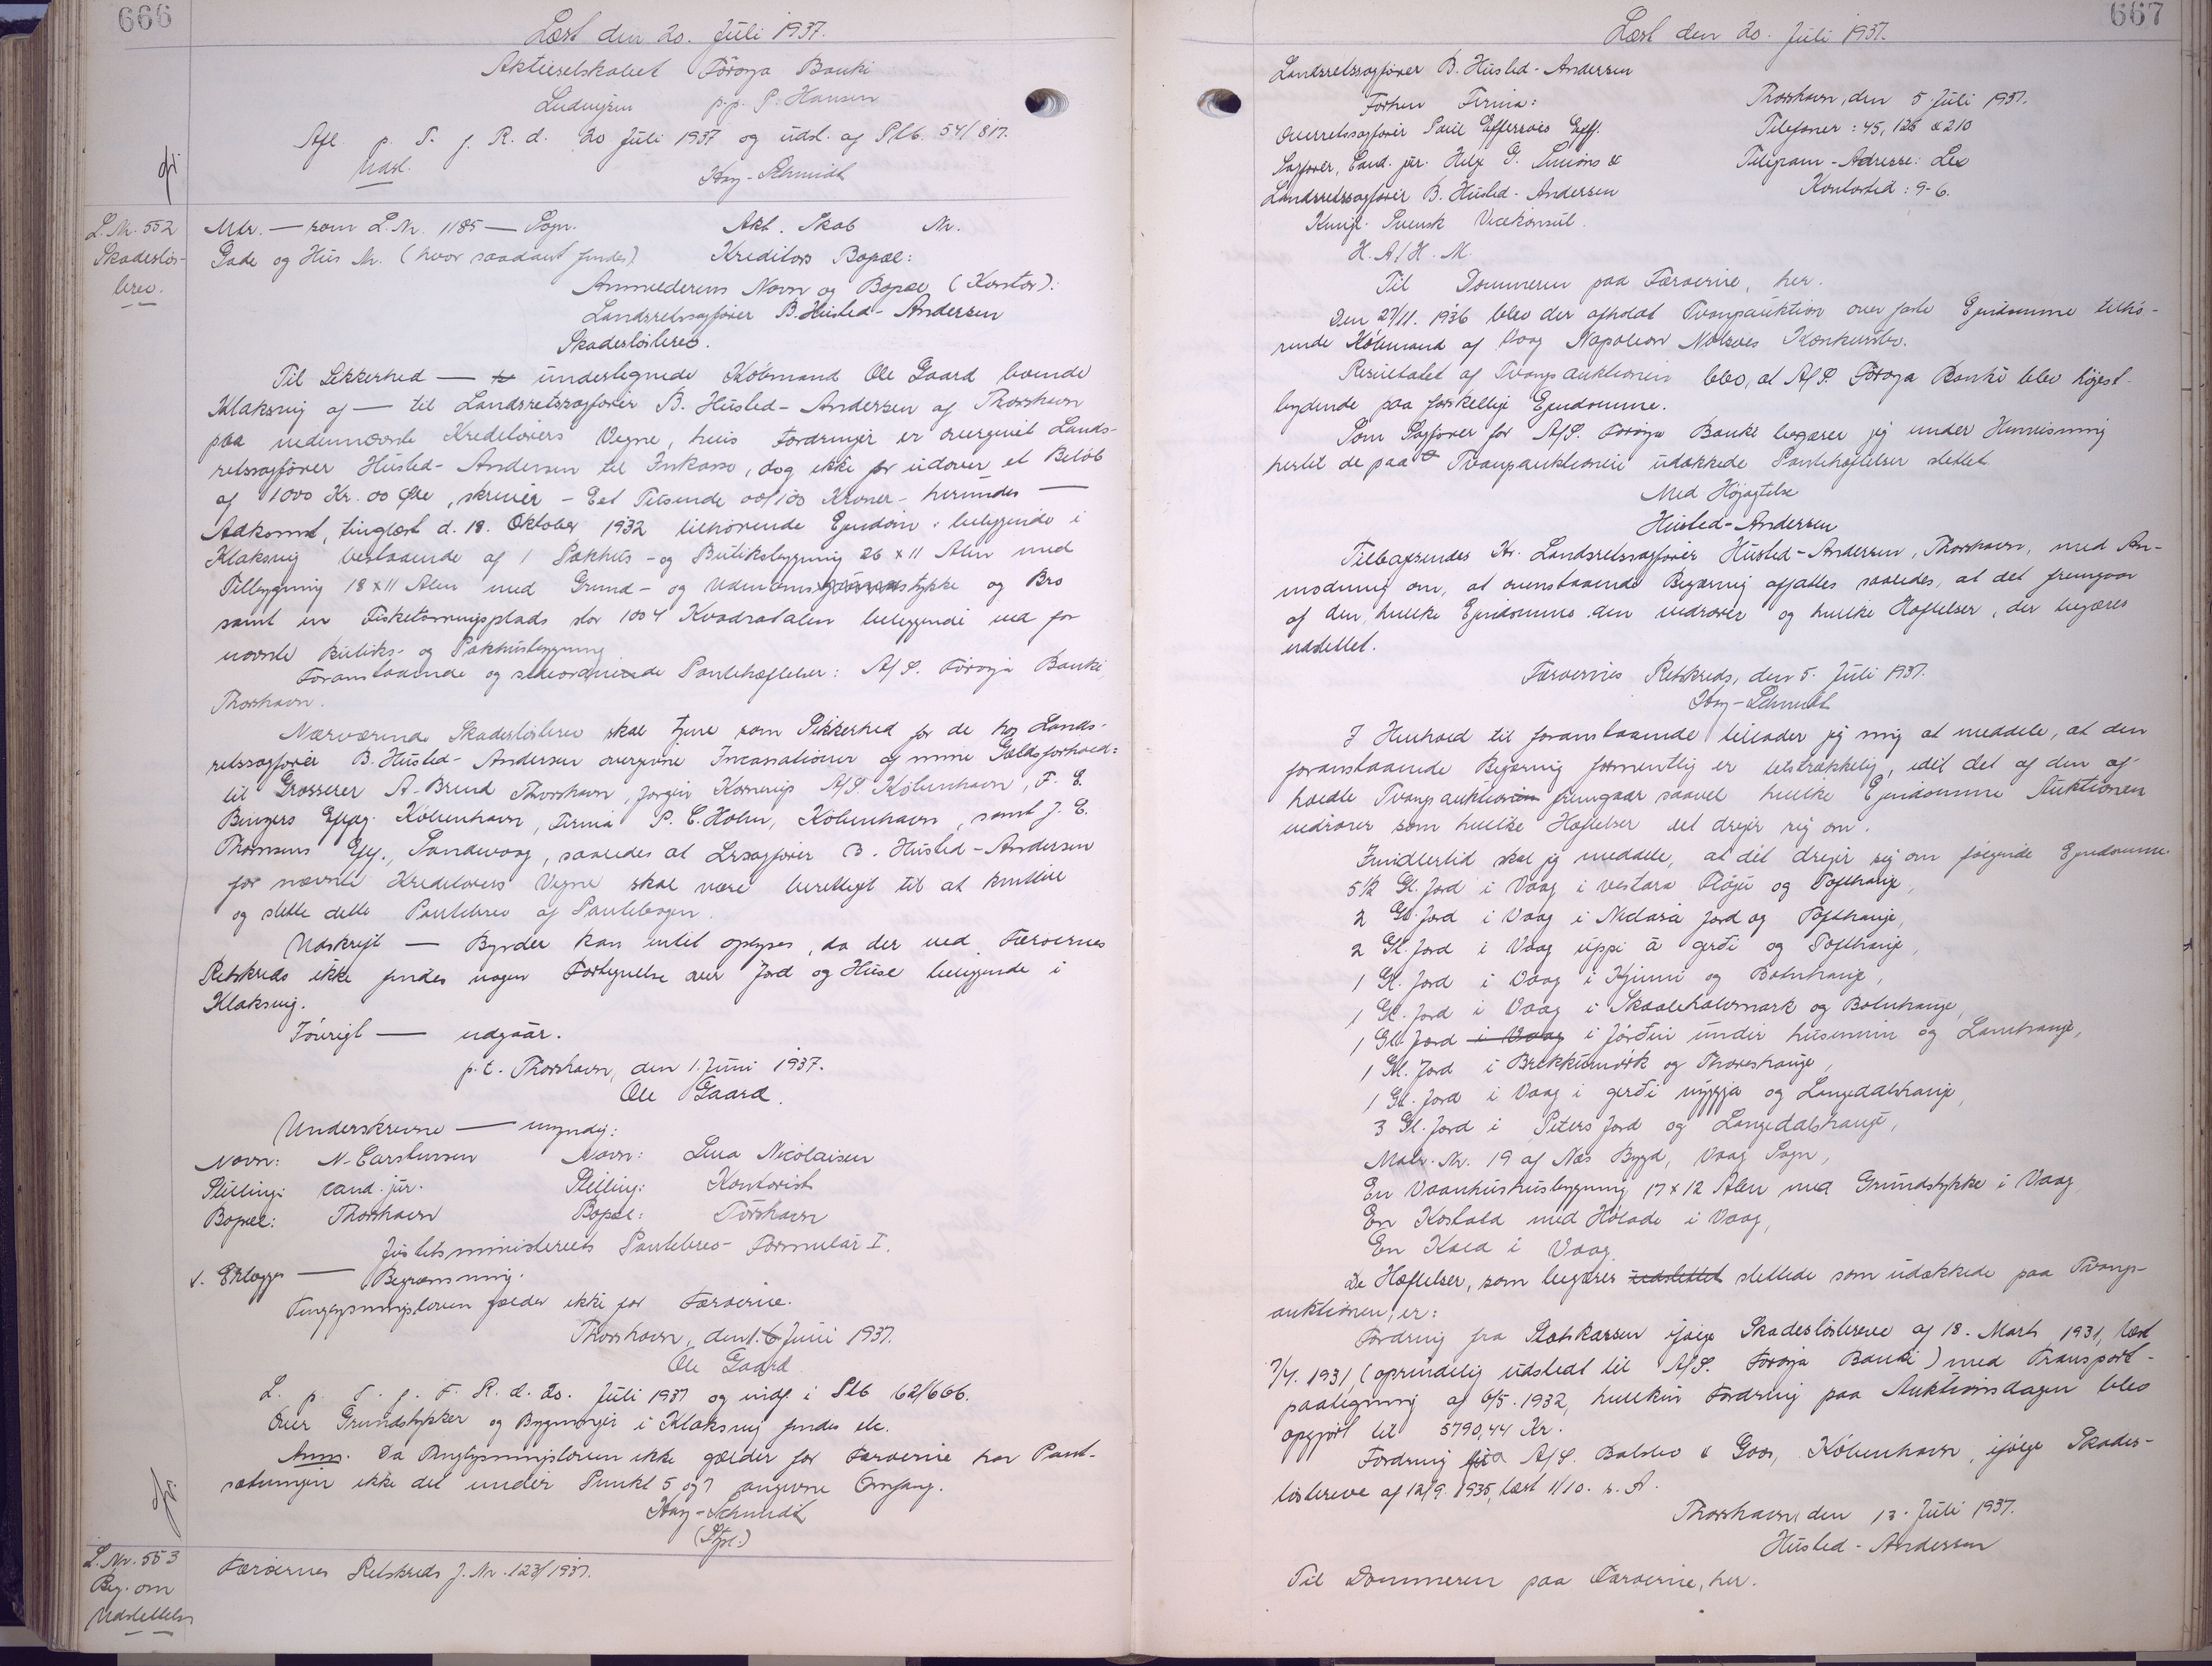 666
Læst den 20. Juli 1937.
Aktieselskabet Föroya Banki
Ludvigsen p.p. P. Hansen
Afl. p. T. f. R. d. 20 Juli 1937 og udsl. af Plb. 54/817.
Udsl. Hay-Schmidt
L. Nr. 552
Skadesløs-
brev.
Mtr. — som L. Nr. 1185 — Sogn. Akt. Skab Nr.
Gade og Hus Nr. (hvor saadant findes) Kreditors Bopæl:
Anmelderens Navn og Bopæl (Kontor):
Landsretssagfører B. Husted-Andersen
Skadesløsbrev.
Til Sikkerhed — undertegnede Købmand Ole Gaard boende
Klaksvig af — til Landsretssagfører B. Husted-Andersen af Thorshavn
paa nedennævnte Kreditorers Vegne, hvis Fordringer er overgivet Lands-
retssagfører Husted-Andersen til Inkasso, dog ikke for udover et Beløb
af 1000 Kr. 00 Øre, skriver - Eet Tusinde 00/100 Kroner - herindes —
Adkomst, tinglæst d. 18. Oktober 1932 tilhørende Ejendom: beliggende i
Klaksvig bestaaende af 1 Pakhus- og Butiksbygning 26 x 11 Alen med
Tilbygning 18 x 11 Alen med Grund- og Udenomsstykke og Bro
samt en Fisketørringsplads stor 1004 Kvadratalen beliggende ved før
nævnte Butiks- og Pakhusbygning
Foranstaaende og sideordnede Pantehæftelser: A/S. Føroya Banki,
Thorshavn.
Nærværende Skadesløsbrev skal tjene som Sikkerhed for de hos Lands-
retssagfører B. Husted-Andersen overgivne Incassationer af mine Gældsforhold:
til Grosserer A. Brend Thorshavn, Jørgen Kornerups A/S. København, F. E.
Bingers Eftfgr. København, Firma P. C. Holm, København, samt J. E.
Thomsens Eftf., Sandevaag, saaledes at Lrssagfører B. Husted-Andersen
for nævnte Kreditorers Vegne skal være berettiget til at kvittere
og slette dette Pantebrev af Pantebogen.
Udskrift — Byrder kan intet oplyses, da der ved Færøernes
Retskreds ikke findes nogen Fortegnelse over Jord og Huse beliggende i
Klaksvig.
Iøvrigt — udgaar.
p.t. Thorshavn, den 1. Juni 1937.
Ole Gaard.
Underskrevne — myndig:
Navn: N. Carstensen Navn: Lena Nicolaisen
Stilling: cand. jur. Stilling: Kontorist
Bopæl: Thorshavn Bopæl: Tórshavn
Justitsministeriets Pantebrev-Formular I.
Begrænsning.
Tinglysningsloven gælder ikke for Færøerne.
Thorshavn, den 1. Juni 1937.
Ole Gaard
L. p. T. f. F. R. d. 20. Juli 1937 og indf. i Plb 62/666.
Over Grundstykker og Bygninger i Klaksvig findes etc.
Anm. Da Tinglysningsloven ikke gælder for Færøerne har Pant-
sætningen ikke det under Punkt 5 og 7 angivne Omfang.
Hay-Schmidt
L. Nr. 553
Beg. om
Udslettelse
Færøernes Retskreds J. Nr. 123/1937.
667
Læst den 20. Juli 1937.
Landsretssagfører B. Husted-Andersen
Forhen Firma: Thorshavn, den 5. Juli 1937.
Overretssagfører Poul Effersøes Eftf. Telefoner: 45, 126 & 210
Sagfører, Cand. jur. Helge G. Simóns & Telegram-Adresse: Lex
Landsretssagfører B. Husted-Andersen Kontortid: 9-6.
Kungl. Svensk Vicekonsul.
H.A/H.M.
Til Dommeren paa Færøerne, her.
Den 27/11. 1936 blev der afholdt Tvangsauktion over faste Ejendomme tilhø-
rende Købmand af Vaag Napoleon Nolsøes Konkursbo.
Resultatet af Tvangsauktionen blev, at A/S. Føroya Banki blev højest-
bydende paa forskellige Ejendomme.
Som Sagfører for A/S. Føroya Banki begærer jeg under Henvisning
hertil de paa Tvangsauktionen udækkede Pantehæftelser slettet.
Med Højagtelse
Husted-Andersen
Tilbagesendes Hr. Landsretssagfører Husted-Andersen, Thorshavn, med An-
modning om, at ovenstaaende Begæring affattes saaledes, at det fremgaar
af den, hvilke Ejendomme den vedrører og hvilke Hæftelser, der begæres
udslettet.
Færøernes Retskreds, den 5. Juli 1937.
Hay-Schmidt
I Henhold til foranstaaende tillader jeg mig at meddele, at den
foranstaaende Begæring formentlig er tilstrækkelig, idet det af den af-
holdte Tvangsauktion fremgaar saavel hvilke Ejendomme Auktionen
vedrører som hvilke Hæftelser det drejer sig om.
Imidlertid skal jeg meddele, at det drejer sig om følgende Ejendomme:
5 1/2 Gl. Jord i Vaag i vestara Fløtju og Tofthauge,
2 Gl. Jord i Vaag i Nidara jord og Tofthauge,
2 Gl. Jord i Vaag uppi á gerði og Tofthauge,
1 Gl. Jord i Vaag i Kjunni og Botnhauge,
1 Gl. Jord i Vaag i Skaaleholmsmark og Botnhauge,
1 Gl. Jord i Vaag i Jórðin undir húsunum og Lamhauge,
1 Gl. Jord i Brekkumørk og Thoreshauge,
1 Gl. Jord i Vaag i gerði nýggja og Langedalshauge,
3 Gl. Jord i Peters Jord og Langedalshauge,
Matr. Nr. 19 af Næs Bygd, Vaag Sogn,
En Vaanhushusbygning 17 x 12 Alen med Grundstykke i Vaag,
En Kostald med Hølade i Vaag,
En Kald i Vaag.
De Hæftelser, som begæres udslettet slettede som udækkede paa Tvangs-
auktionen, er:
Fordring fra Statskassen ifølge Skadesløsbreve af 18. Marts 1931, læst
7/4. 1931, (oprindelig udstedt til A/S. Føroya Banki) med Transport-
paategning af 6/5. 1932, hvilken Fordring paa Auktionsdagen blev
opgjort til 5790,44 Kr.
Fordring fra A/S. Balslev & Goos, København, ifølge Skades-
løsbreve af 12/9. 1935, læst 1/10. s. A.
Thorshavn, den 13. Juli 1937.
Husted-Andersen
Til Dommeren paa Færøerne, her.